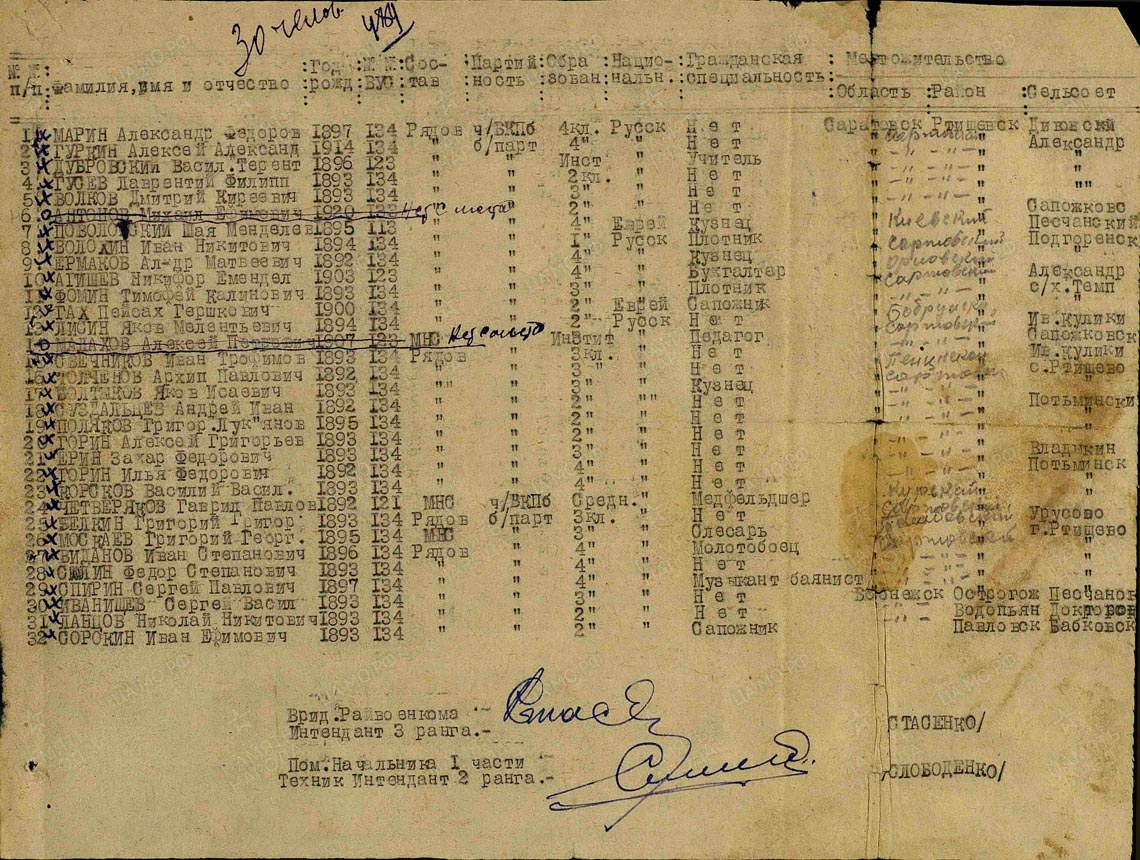 30 челов.
№№: :Год :№№:Сос- :Партий:Обра :Нацио-:Гражданская : Местожительство
п/п:Фамилия,имя и отчество :рожд:ВУС:тав :ность :зован:нальн.:специальность: Область :Район :Сельсовет
1 МАРИН Александр Федоров 1897 134 Рядов ч/ВКПб 4кл. Русск Нет Саратовск Ртищевск Дивовски
2 ГУРКИН Алексей Александ 1914 134 " б/парт 4" " Нет " Александр
3 ДУБРОВСКИЙ Васил.Терент 1896 123 " " Инст. " Учитель -"- -"- " "
4. ГУСЕВ Лаврентий Филипп 1893 134 " " 2кл. " Нет -"- -"- " ""
5 ВОЛКОВ Дмитрий Киреевич 1893 134 " " 3" " Нет -"- -"- " "
6. АНТОНОВ Михаил Ефимович 1920 133 Нет места " 2" " Нет " Сапожковс
7 ПОВОЛОЦКИЙ Шая Менделев 1895 113 " " 4" Еврей Кузнец Киевский " Песчанский
8 ВОЛОХИН Иван Никитович 1894 134 " " 1" Русск Плотник сартовский " Подгоренск
9 ЕРМАКОВ Ал-др Матвеевич 1892 134 " " 4" " Кузнец Орловский " "
10 АТИШЕВ Никифор Емендел 1903 123 " " 4" " Бухгалтер Сартовский " Александр
11 ФОМИН Тимофей Калинович 1893 134 " " 3" " Плотник -"- -"- " с/х.Темп
12 ГАХ Пейсах Гершкович 1900 134 " " 2" Еврей Сапожник "
13 ЛИСИН Яков Мелентьевич 1894 134 " " 2" Русск Нет Сартовский " Ив.Кулики
14 МАЛАХОВ Алексей Петрович 1907 123 МНС Инстит " Педагог " Сапожковск
15 СВЕЧНИКОВ Иван Трофимов 1893 134 Рядов " 3кл. " Нет " Ив.Кулики
16 ТОЛЧЕНОВ Архип Павлович 1892 134 " " 3" " Нет Сартовский " с.Ртищево
17 БОЛТЯКОВ Яков Исаевич 1893 134 " " 3" " Кузнец -"- -"- " "
18 СУЗДАЛЬЦЕВ Андрей Иван 1892 134 " " 2" "" Нет -"- -"- " Потьмински
19 ПОЛЯКОВ Григор.Лук"янов 1895 134 " " 2" " Нет -"- -"- " -"-
20 ГОРИН Алексей Григорьев 1893 134 " " 2" " Нет -"- -"- " "
21 ЕРИН Захар Федорович 1893 134 " " 3" " Нет -"- -"- " Владыкин
22 ГОРИН Илья Федорович 1892 134 " " 4" " Нет -"- -"- " Потьминск
23 КОРСКОВ Василий Васил. 1893 134 " " 4" " Нет Курский " "
24 ЧЕТВЕРЯКОВ Гаврил Павлов 1892 121 МНС ч/ВКПб Средн. " Медфельдшер Сартовский " "
25 БЕЛКИН Григорий Григор. 1893 134 Рядов б/парт 3кл. " Нет " Урусово
26 МОСКАЕВ Григорий Георг. 1895 134 МНС " 3" " Слесарь Сартовский " г.Ртищево
27 ВИДАНОВ Иван Степанович 1896 134 Рядов " 4" " Молотобоец -"- -"- " "
28 СЫЛИН Федор Степанович 1893 134 " " 4" " Нет -"- -"- " "
29 СПИРИН Сергей Павлович 1897 134 " " 4" " Музыкант баянист -"- " "
30 ИВАНИШЕВ Сергей Васил 1893 134 " " 3" " Нет Воронежск Острогож Песчанов
31 ЛАНЦОВ Николай Никитович 1893 134 " " 2" " Нет -"- Водопьян Докторов
32 СОРОКИН Иван Ефимович 1893 134 " " 2" " Сапожник -"- Павловск Бабковск
Врид.Райвоенкома -
Интендант 3 ранга.- /СТАСЕНКО/
Пом.Начальника 1 части
Техник Интендант 2 ранга.- /СЛОБОДЕНКО/